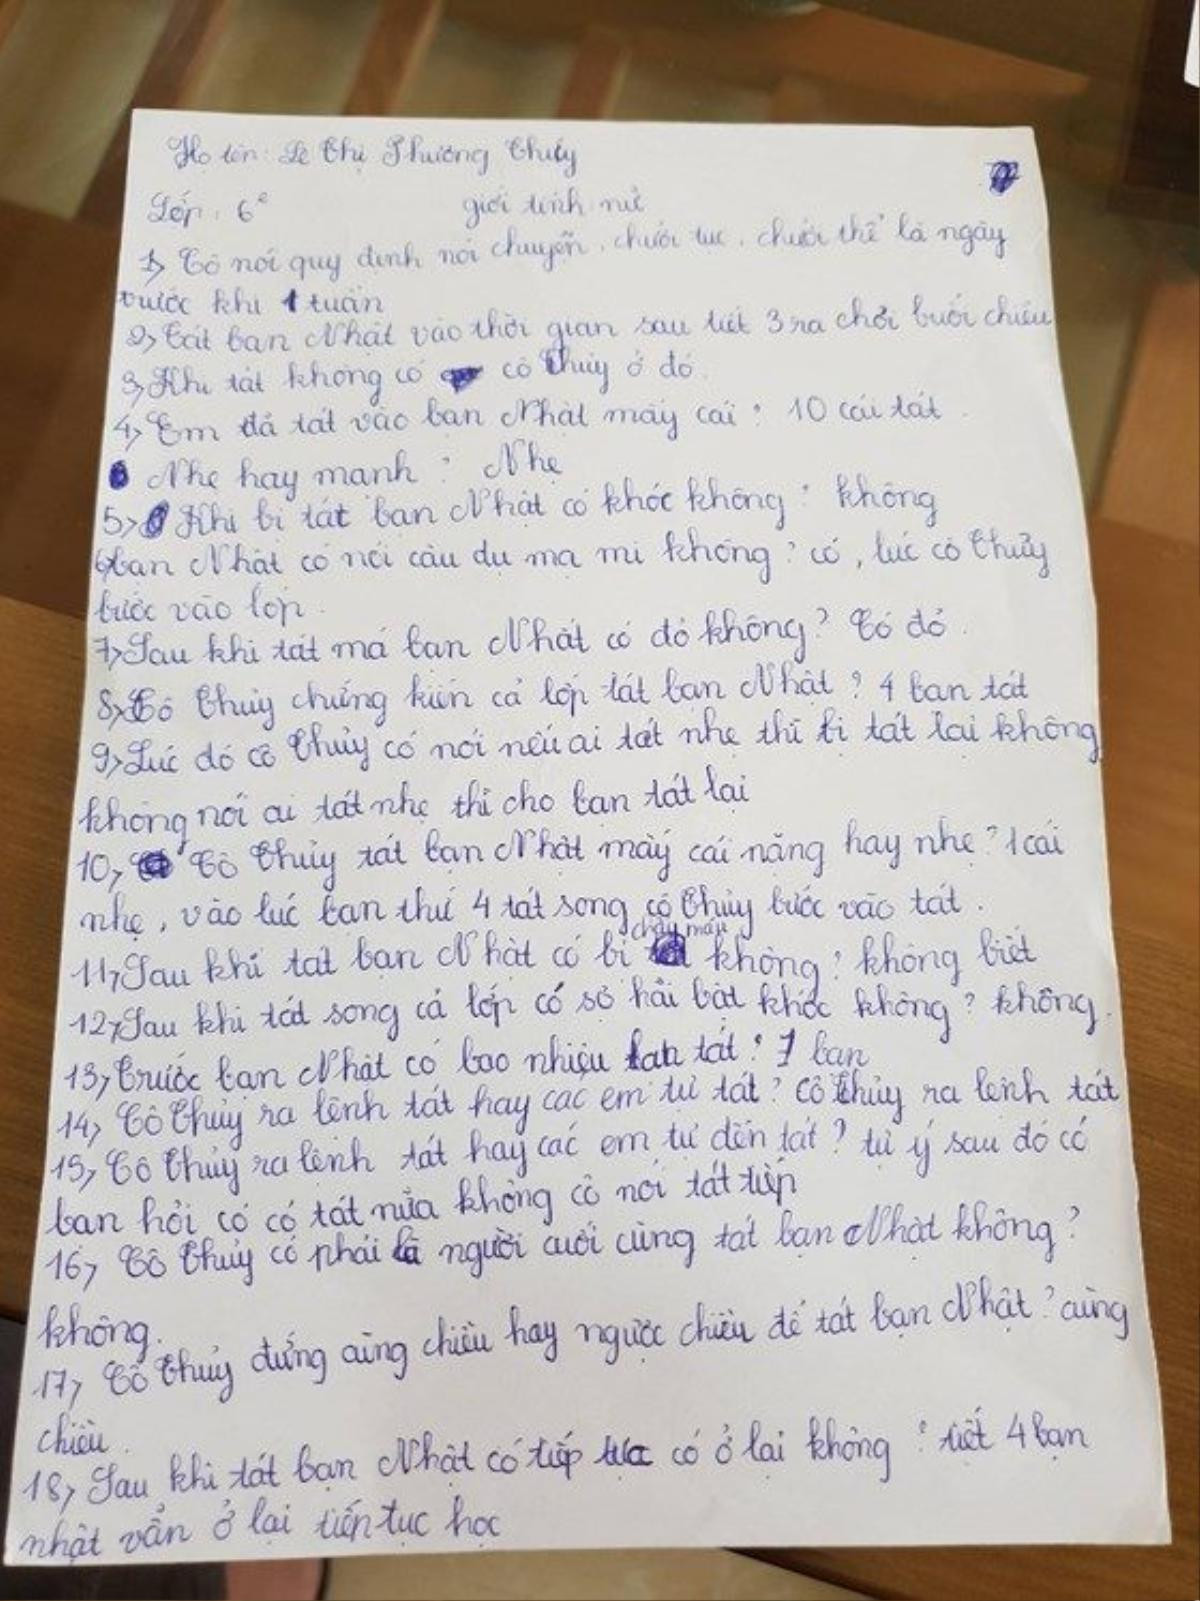 Họ tên: Lê Thị Phương Thủy
Lớp: 6² giới tính nữ
1, Cô nói quy định nói chuyện, chưởi tục, chưởi thề là ngày
trước khi 1 tuần
2, Tát bạn Nhật vào thời gian sau tiết 3 ra chơi buổi chiều
3, Khi tát không có cô Thủy ở đó.
4, Em đã tát vào bạn Nhật mấy cái? 10 cái tát
Nhẹ hay mạnh? Nhẹ
5, Khi bị tát bạn Nhật có khóc không? không
6, bạn Nhật có nói câu dụ mạ mi không? có, lúc cô Thủy
bước vào lớp.
7, Sau khi tát má bạn Nhật có đỏ không? Có đỏ.
8, Cô Thủy chứng kiến cả lớp tát bạn Nhật? 4 bạn tát
9, Lúc đó cô Thủy có nói nếu ai tát nhẹ thì bị tát lại không
không nói ai tát nhẹ thì cho bạn tát lại
10, Cô Thủy tát bạn Nhật mấy cái nặng hay nhẹ? 1 cái
nhẹ, vào lúc bạn thứ 4 tát song cô Thủy bước vào tát.
11, Sau khi tát bạn Nhật có bị chảy máu không? không biết
12, Sau khi tát song cả lớp có sợ hãi bật khóc không? không.
13, Trước bạn Nhật có bao nhiêu bạn tát? 7 bạn
14, Cô Thủy ra lệnh tát hay các em tự tát? Cô Thủy ra lệnh tát
15, Cô Thủy ra lệnh tát hay các em tự đến tát? tự ý sau đó có
bạn hỏi cô có tát nữa không cô nói tát tiếp
16, Cô Thủy có phải là người cuối cùng tát bạn Nhật không?
không.
17, Cô Thủy đứng cùng chiều hay ngược chiều để tát bạn Nhật? cùng
chiều.
18, Sau khi tát bạn Nhật có tiếp tục có ở lại không? tiết 4 bạn
nhật vẫn ở lại tiến tục học